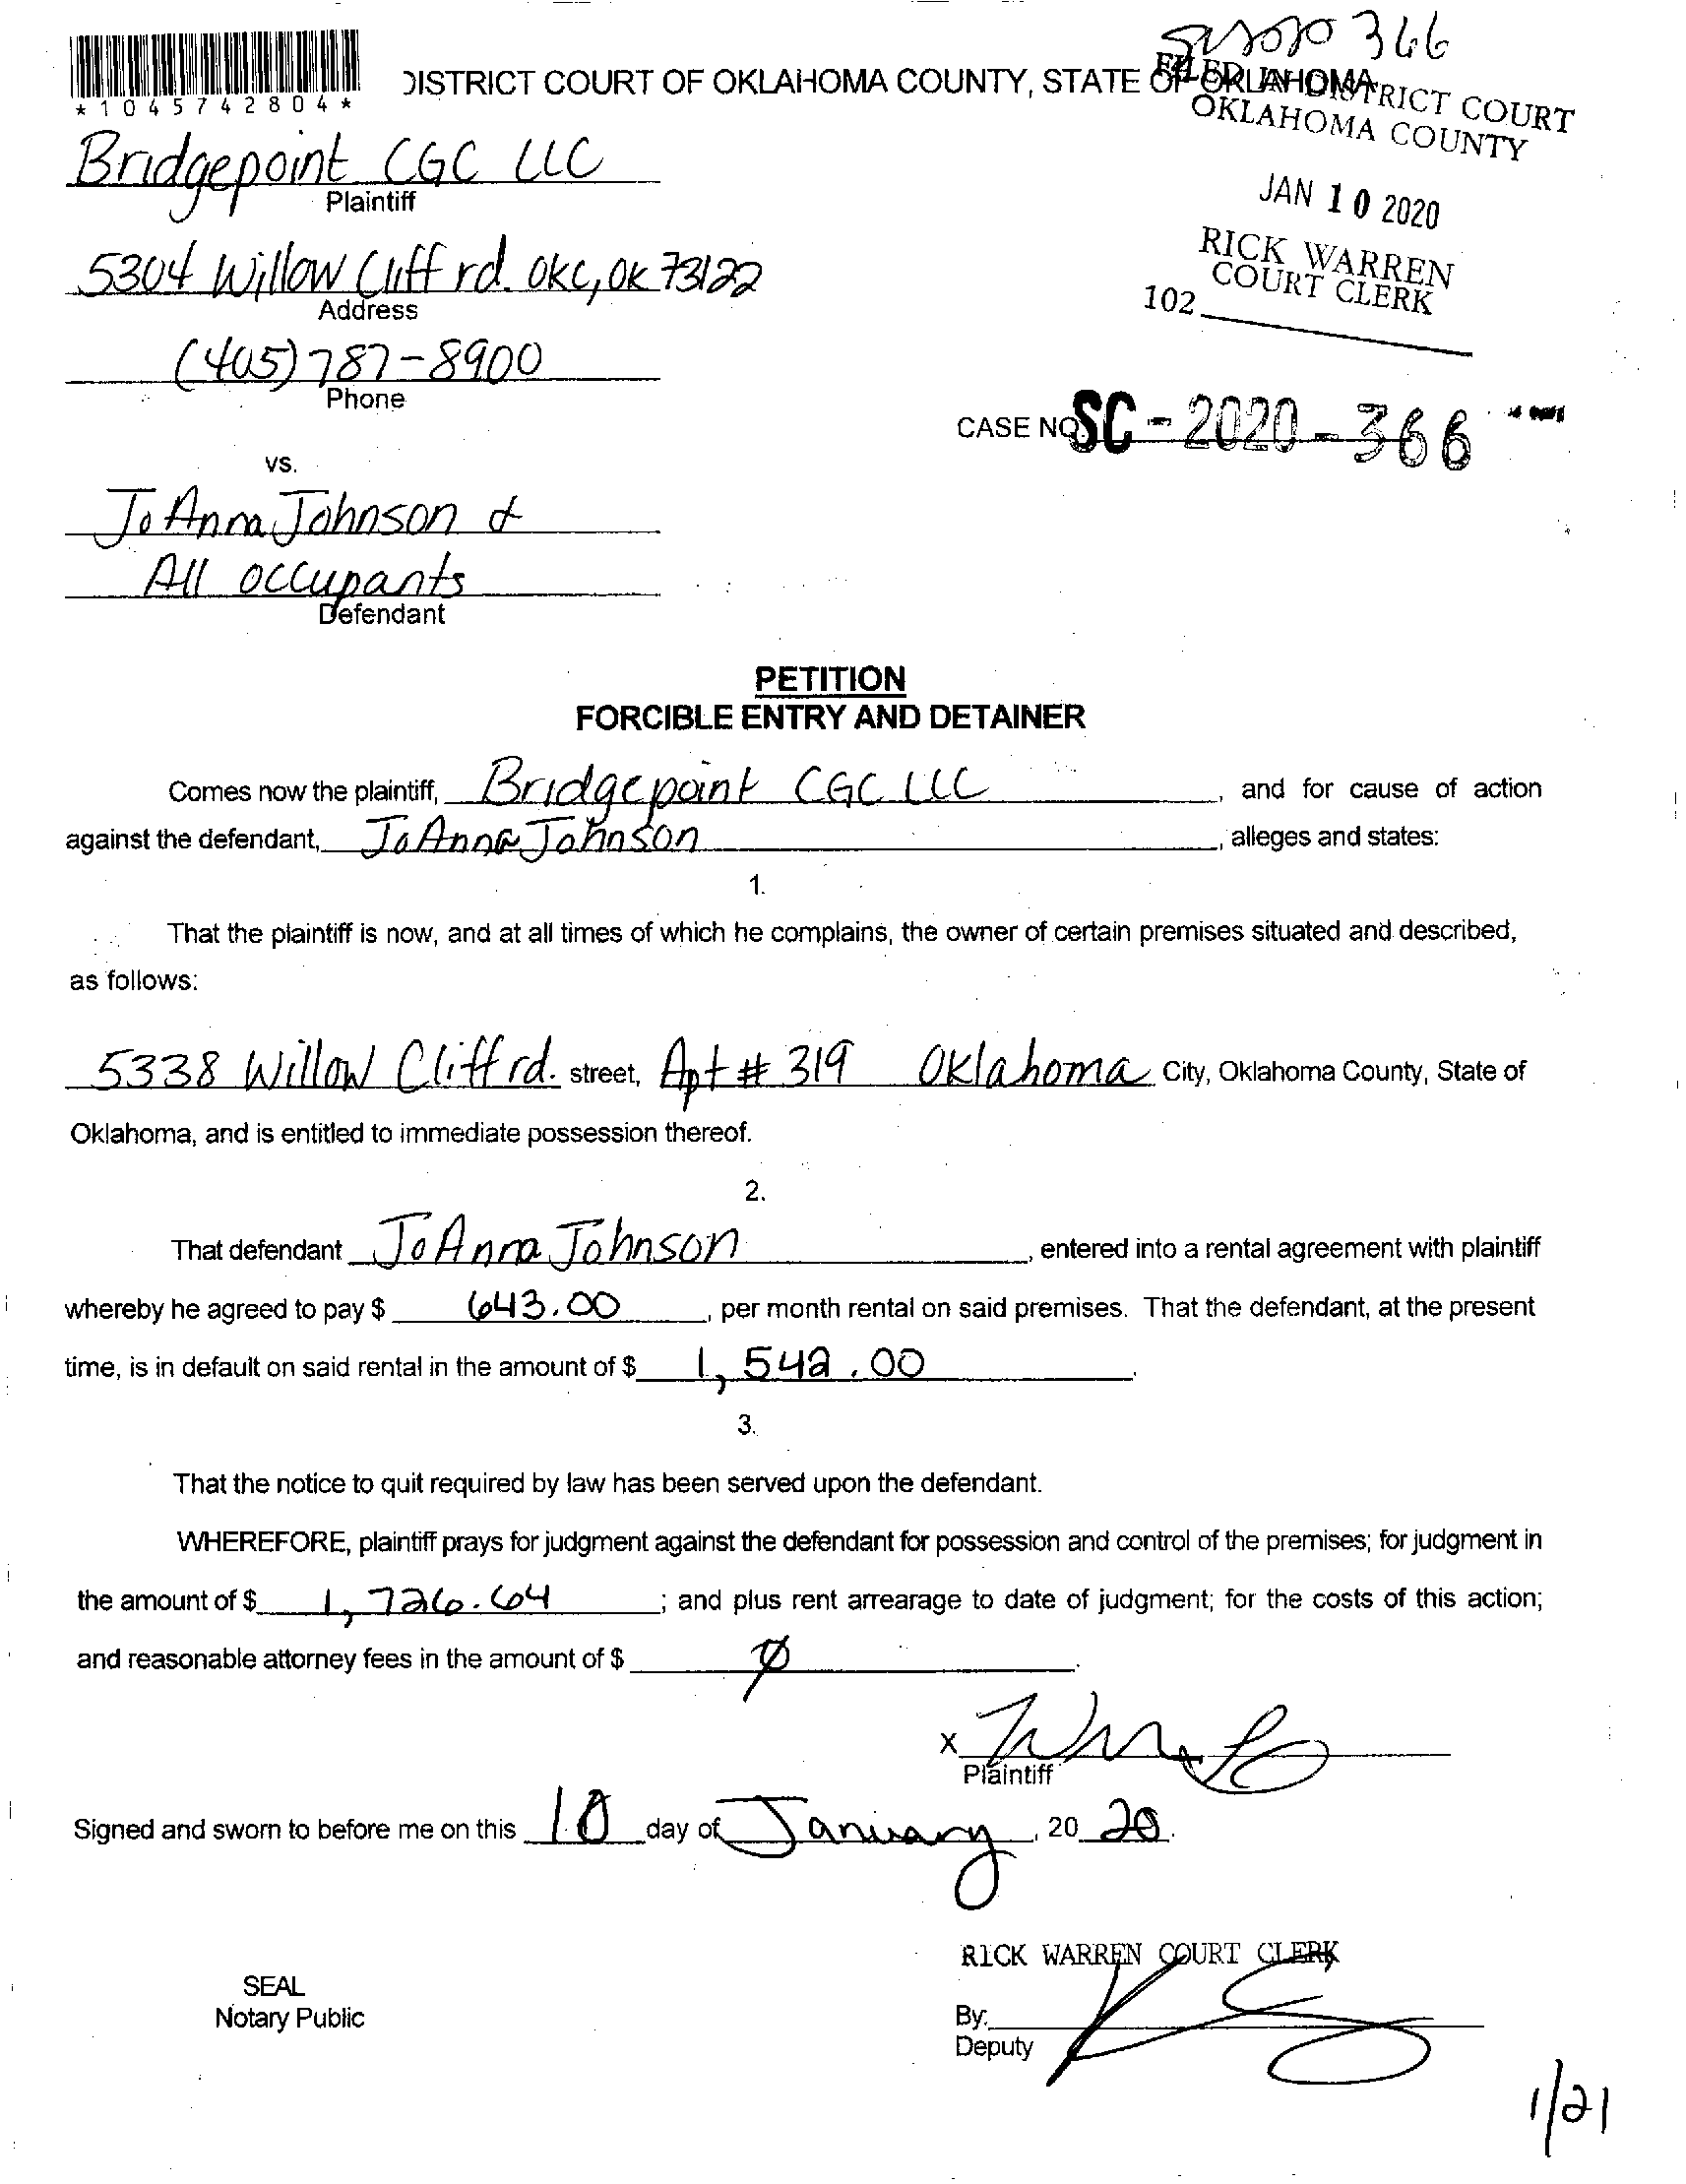 366
*1045742804*
DISTRICT COURT OF OKLAHOMA COUNTY, STATE OF OKLAHOMA
FILED IN DISTRICT COURT
OKLAHOMA COUNTY
JAN 10 2020
RICK WARREN
COURT CLERK
102
Bridgepoint CGC LLC
Plaintiff
5304 Willow Cliff rd. OKC, OK 73122
Address
(405) 787-8900
Phone
CASE NO. SC-2020-366
vs.
JoAnna Johnson &
All occupants
Defendant
PETITION
FORCIBLE ENTRY AND DETAINER
Comes now the plaintiff, Bridgepoint CGC LLC, and for cause of action
against the defendant, JoAnna Johnson, alleges and states:
1.
That the plaintiff is now, and at all times of which he complains, the owner of certain premises situated and described,
as follows:
5338 Willow Cliff rd. street, Apt # 319 Oklahoma City, Oklahoma County, State of
Oklahoma, and is entitled to immediate possession thereof.
2.
That defendant JoAnna Johnson, entered into a rental agreement with plaintiff
whereby he agreed to pay $ 643.00, per month rental on said premises. That the defendant, at the present
time, is in default on said rental in the amount of $ 1,542.00.
3.
That the notice to quit required by law has been served upon the defendant.
WHEREFORE, plaintiff prays for judgment against the defendant for possession and control of the premises; for judgment in
the amount of $ 1,726.64; and plus rent arrearage to date of judgment; for the costs of this action;
and reasonable attorney fees in the amount of $ 0.
X
Plaintiff
Signed and sworn to before me on this 10 day of January, 2020.
RICK WARREN COURT CLERK
SEAL
Notary Public
By:
Deputy
1/21